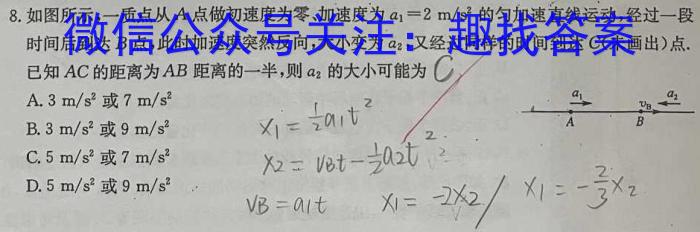 8. 如图所示,一质点从 A 点做初速度为零、加速度为 a₁=2 m/s² 的匀加速直线运动,经过一段
时间后到达 B 点,此时加速度突然反向,大小变为 a₂,又经过同样的时间到达 C(未画出)点.
微信公众号关注:趣找答案
已知 AC 的距离为 AB 距离的一半,则 a₂ 的大小可能为 C
A. 3 m/s² 或 7 m/s²
B. 3 m/s² 或 9 m/s²
C. 5 m/s² 或 7 m/s²
D. 5 m/s² 或 9 m/s²
a₁ v_B a₂
A B
x₁ = ½a₁t²
x₂ = v_Bt − ½a₂t²
v_B = a₁t x₁ = −2x₂ / x₁ = −⅔x₂